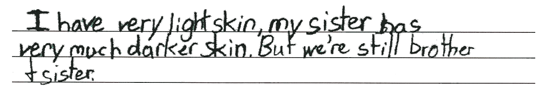 I have very light skin, my sister has
very much darker skin. But we're still brother
+ sister.